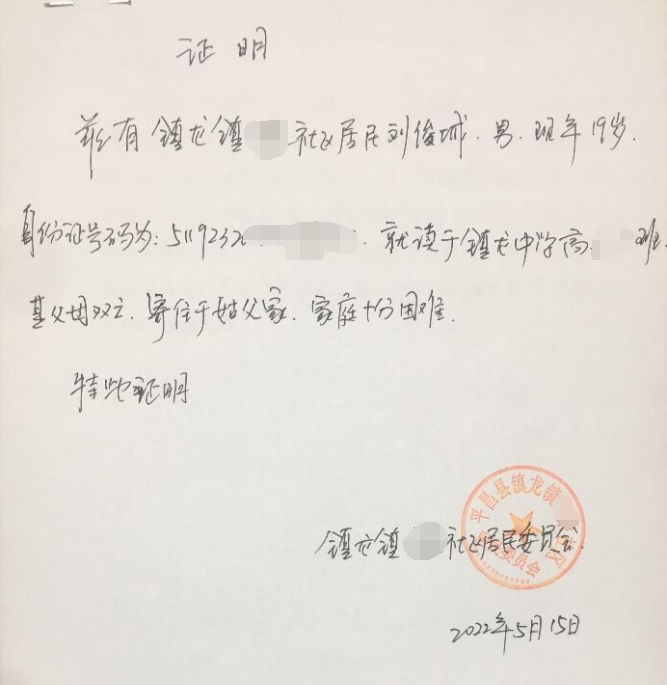 证明
兹有镇龙镇 社区居民刘俊城.男.现年19岁.
身份证号码为:5119232 .就读于镇龙中学高 班.
其父母双亡.寄住于姑父家.家庭十分困难.
特此证明
平昌县镇龙镇 社区
居民委员会
镇龙镇 社区居民委员会.
2022年5月15日